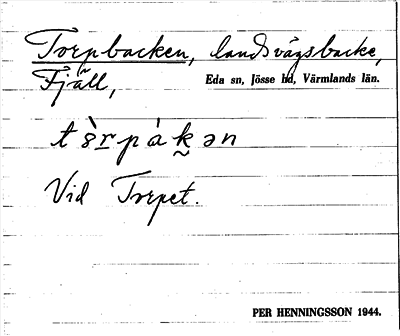 Torpbacken, landsvägsbacke,
Fjäll, Eda sn, Jösse hd, Värmlands län.
tö̀rpàkən
Vid Torpet.
PER HENNINGSSON 1944.